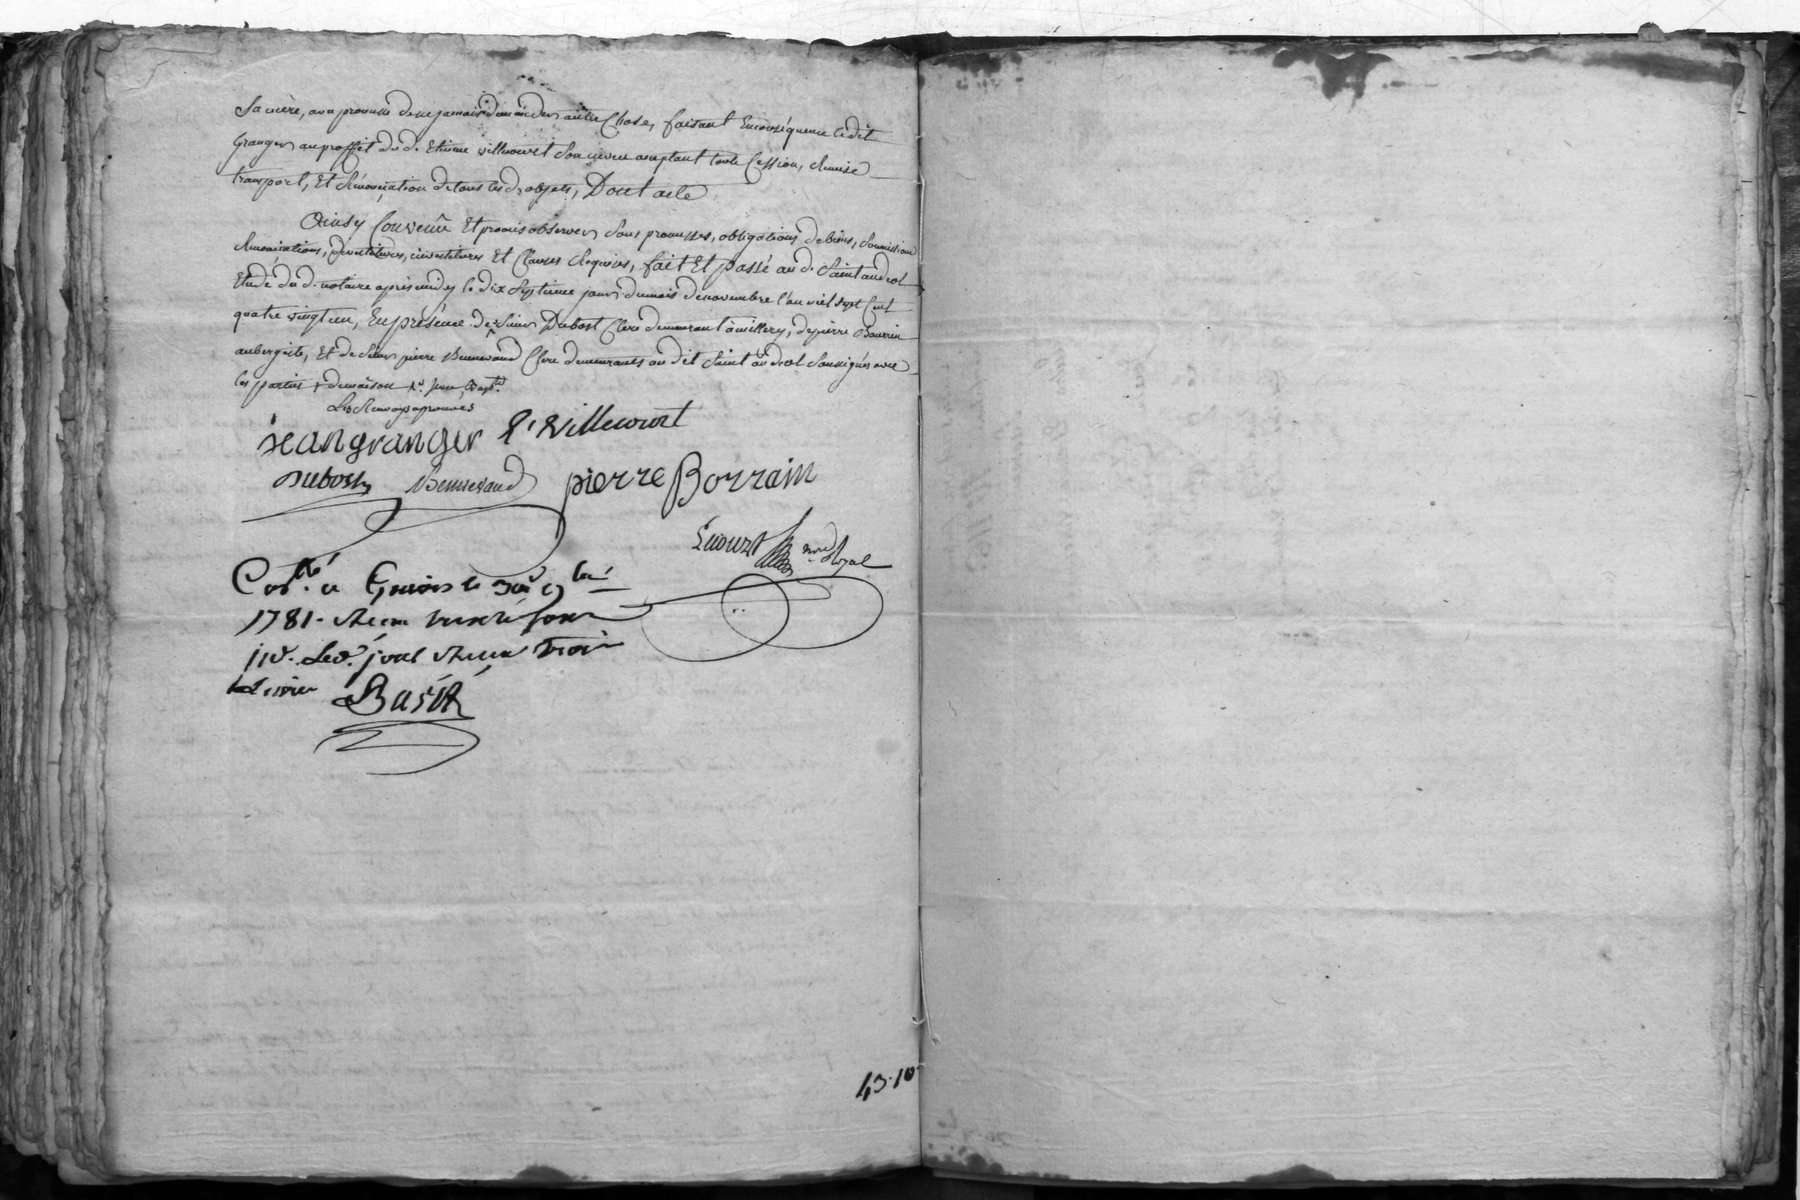 Sa mère, avec promesse de ne jamais demander autre Chose, faisant En conséquence le dit
Granger au proffit du d. Etienne villecourt Son neveu acceptant toute Cession, Remise
transport, Et Rénonciation de tous les d objets, Dont acte
Ainsy Convenû Et promis observer Sous promesses, obligations de biens, Soumissions
Renonciations, dévestitures, investitures Et Clauses Requises, fait Et passé au d. Saint andeol
Etude du d. notaire après midy le dix Septieme jour du mois de novembre l'an mil sept Cent
quatre vingt un, En présence de Dubost Clerc demeurant à millery, de pierre Bourrin
aubergiste, Et de Sieur pierre Bennevand Clerc demeurants au dit Saint andeol Soussignés avec
les parties
Les Renvoys aprouvés
jean granger E. villecourt
Dubost Bennevand pierre Borrain
Royal
Con.lé a Givors le
1781.

Basset
43.10